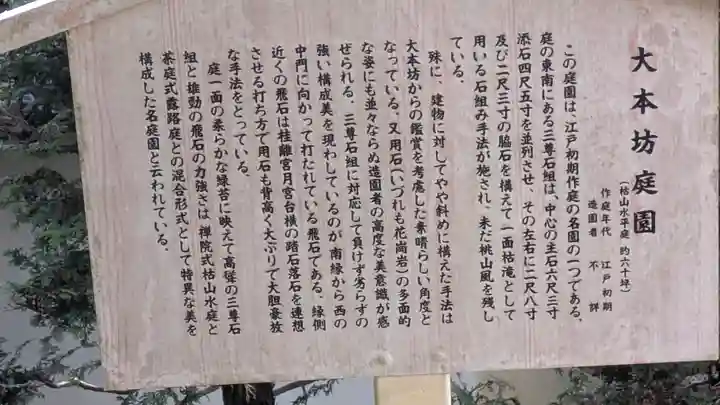 大本坊庭園
(枯山水平庭 約六十坪)
作庭年代 江戸初期
造園者 不詳
この庭園は、江戸初期作庭の名園の一つである、
庭の東南にある三尊石組は、中心の主石六尺三寸
添石四尺五寸を並列させ、その左右に二尺八寸
及び二尺三寸の脇石を構えて一面枯滝として
用いる石組み手法が施され、未だ桃山風を残し
ている。
殊に、建物に対してやや斜めに構えた手法は
大本坊からの鑑賞を考慮した素晴らしい角度と
なっている、又用石(いづれも花崗岩)の多面的
な姿にも並々ならぬ造園者の高度な美意識が感
ぜられる、三尊石組に対応して負けず劣らずの
強い構成美を現わしているのが南縁から西の
中門に向かって打たれている飛石である、縁側
近くの飛石は桂離宮月宮台横の踏石落石を連想
させる打ち方で用石も背高く大ぶりで大胆豪放
な手法をとっている。
庭一面の柔らかな緑苔に映えて高聳の三尊石
組と雄勁の飛石の力強さは禅院式枯山水庭と
茶庭式露路庭との混合形式として特異な美を
構成した名庭園と云われている。